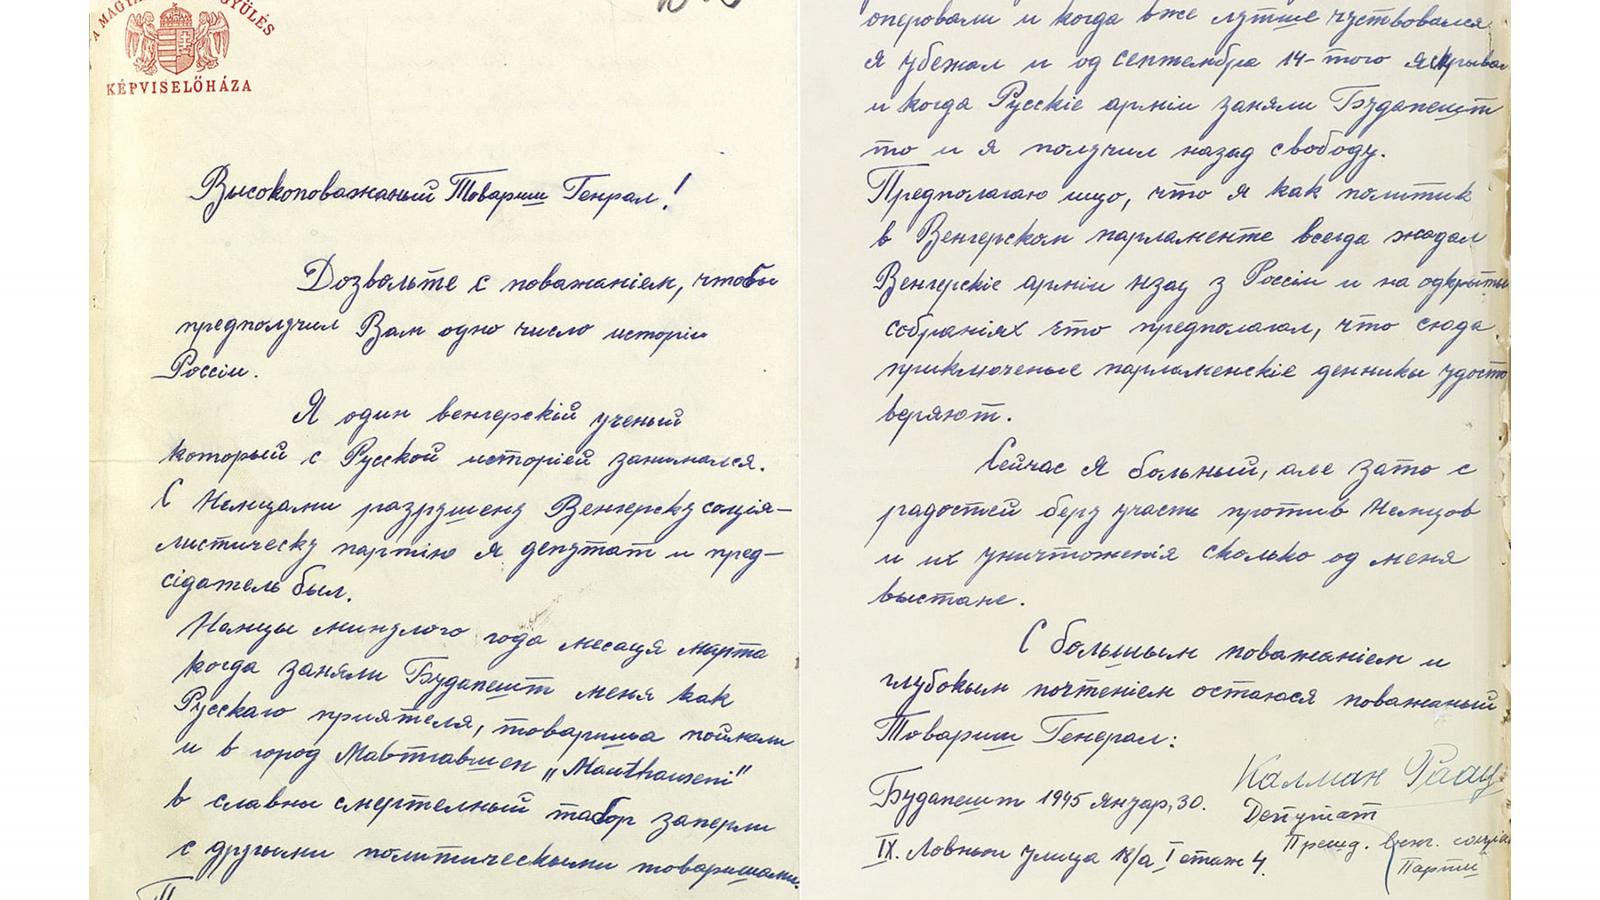 A MAGYA GYÜLÉS
KÉPVISELŐHÁZA
Высокоповажаный Товариш Генрал!
Дозвольте с поважаніем, чтобы
предполучил Вам одно число исторіи
Россіи.
Я один венгерскій ученый
который с Русской исторіей занимался.
С Немцами разрушену Венгерску соція-
листическу партію я депутат и пред-
сідатель был.
Немцы минулого года месаця марта
когда заняли Будапешт меня как
Русскаго приятеля, товариша поймали
и в город Мавтгавшен „Mauthauseni"
в славны смертелный табор заперли
с другыми политическыми товаришами.
оперовали и когда вже лутше чуствовался
я убежал и од септембра 14-того я скрывал
и когда Русскіе арміи заняли Будапешт
то и я получил назад свободу.
Предполагаю ищо, что я как политик
в Венгерском парламенте всегда жадал
Венгерскіе арміи нзад з Россіи и на одкрыты
собраніях ето предполагал, что сюда
приключеные парламенскіе денникы удосто
веряют.
Сейчас я больный, але зато с
радостей беру участь против Немцов
и их уничтоженія сколько од меня
выстане.
С большым поважаніем и
глубокым почтеніем остаюся поважаный
Товариш Генерал:
Будапешт 1945 Януар, 30. Калман Раац
IX. Ловньи улица 18/а I етаж 4. Депутат
Презид. венг. соція
Партіи